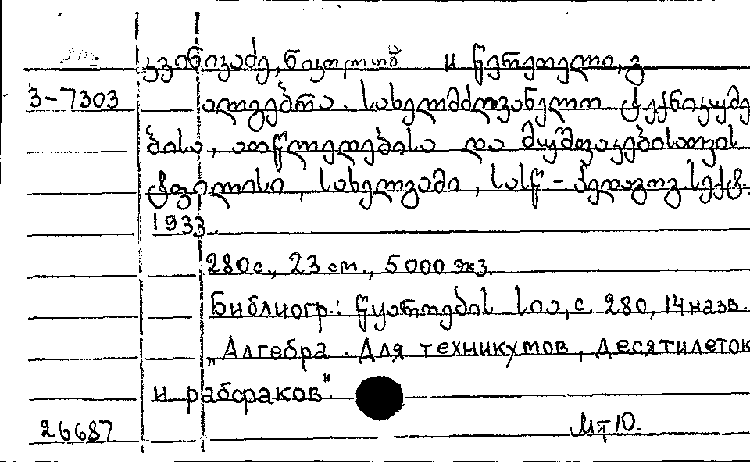 კვინიკაძე, ნიკოლოზ и წერეთელი, გ
3-7303 ალგებრა. სახელმძღვანელო ტექნიკუმე
ბისა, ათწლედებისა და მუშფაკებისათვის
ტფილისი, სახელგამი, სასწ - პედაგოგ სექტ.
1933
280 с., 23 cm., 5000 экз.
Библиогр.: წყაროების სია, с 280, 14 назв.
"Алгебра. Для техникумов, десятилеток
и рабфаков"
26687